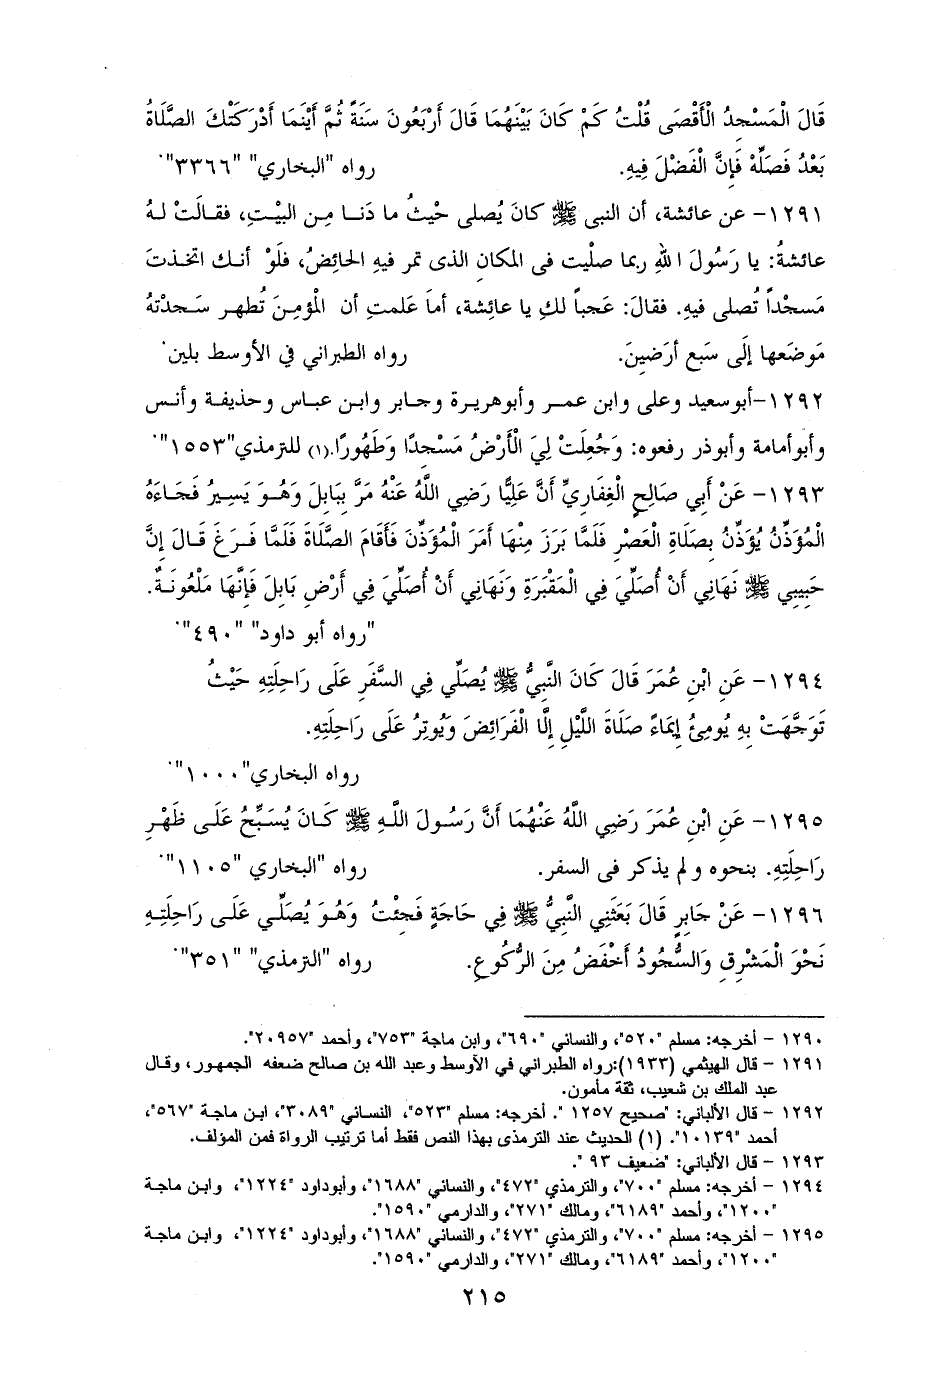 قَالَ الْمَسْجِدُ الْأَقْصَى قُلْتُ كَمْ كَانَ بَيْنَهُمَا قَالَ أَرْبَعُونَ سَنَةً ثُمَّ أَيْنَمَا أَدْرَكَتْكَ الصَّلَاةُ
بَعْدُ فَصَلِّهْ فَإِنَّ الْفَضْلَ فِيهِ. رواه "البخاري" "٣٣٦٦".
١٢٩١- عن عائشة، أن النبى ﷺ كانَ يُصلى حيْثُ ما دَنـا مِـن البيْـتِ، فقـالَتْ لـهُ
عائشةُ: يا رَسُولَ اللهِ ربما صلْيت فى المكانِ الذى تمر فيهِ الحائِضُ، فلَوْ أنـك اتخـذتَ
مَـسجْداً تُصلى فيهِ. فقالَ: عَجباً لكِ يا عائِشة، أماَ عَلمتِ أن الْمؤمِـنَ تُطهـر سَـجدْتهُ
مَوضَعها إلَى سَبَع أرَضينَ. رواه الطبراني في الأوسط بلين.
١٢٩٢-أبوسعيد وعلى وابن عمـر وأبوهريـرة وجـابر وابـن عبـاس وحذيفـة وأنـس
وأبوأمامة وأبوذر رفعوه: وَجُعِلَتْ لِيَ الْأَرْضُ مَسْجِدًا وَطَهُورًا.(١) للترمذي"١٥٥٣".
١٢٩٣- عَنْ أَبِي صَالِحٍ الْغِفَارِيِّ أَنَّ عَلِيًّا رَضِي اللَّهُ عَنْهُ مَرَّ بِبَابِلَ وَهُـوَ يَسِيـرُ فَجَـاءَهُ
الْمُؤَذِّنُ يُؤَذِّنُ بِصَلَاةِ الْعَصْرِ فَلَمَّا بَرَزَ مِنْهَا أَمَرَ الْمُؤَذِّنَ فَأَقَامَ الصَّلَاةَ فَلَمَّا فَـرَغَ قَـالَ إِنَّ
حَبِيبِي ﷺ نَهَانِي أَنْ أُصَلِّيَ فِي الْمَقْبَرَةِ وَنَهَانِي أَنْ أُصَلِّيَ فِي أَرْضِ بَابِلَ فَإِنَّهَا مَلْعُونَـةٌ.
"رواه أبو داود" "٤٩٠".
١٢٩٤- عَنِ ابْنِ عُمَرَ قَالَ كَانَ النَّبِيُّ ﷺ يُصَلِّي فِي السَّفَرِ عَلَى رَاحِلَتِهِ حَيْثُ
تَوَجَّهَتْ بِهِ يُومِئُ إِيمَاءً صَلَاةَ اللَّيْلِ إِلَّا الْفَرَائِضَ وَيُوتِرُ عَلَى رَاحِلَتِهِ.
رواه البخاري"١٠٠٠".
١٢٩٥- عَنِ ابْنِ عُمَرَ رَضِي اللَّهُ عَنْهُمَا أَنَّ رَسُولَ اللَّـهِ ﷺ كَـانَ يُسَبِّـحُ عَلَـى ظَهْـرِ
رَاحِلَتِهِ. بنحوه و لم يذكر فى السفر. رواه "البخاري "١١٠٥".
١٢٩٦- عَنْ جَابِرٍ قَالَ بَعَثَنِي النَّبِيُّ ﷺ فِي حَاجَةٍ فَجِئْتُ وَهُـوَ يُصَلِّـي عَلَـى رَاحِلَتِـهِ
نَحْوَ الْمَشْرِقِ وَالسُّجُودُ أَخْفَضُ مِنَ الرُّكُوعِ. رواه "الترمذي" "٣٥١".
١٢٩٠ - أخرجه: مسلم "٥٢٠"، والنسائي "٦٩٠"، وابن ماجة "٧٥٣"، وأحمد "٢٠٩٥٧".
١٢٩١ - قال الهيثمي (١٩٣٣):رواه الطبراني في الأوسط وعبد الله بن صالح ضعفه الجمهور، وقال
عبد الملك بن شعيب، ثقة مأمون.
١٢٩٢ - قال الألباني: "صحيح ١٢٥٧ ". أخرجه: مسلم "٥٢٣"، النسائي "٣٠٨٩"، ابن ماجة "٥٦٧"،
أحمد "١٠١٣٩". (١) الحديث عند الترمذى بهذا النص فقط أما ترتيب الرواة فمن المؤلف.
١٢٩٣ - قال الألباني: "ضعيف ٩٣ ".
١٢٩٤ - أخرجه: مسلم "٧٠٠"، والترمذي "٤٧٢"، والنسائي "١٦٨٨"، وأبوداود "١٢٢٤"، وابن ماجة
"١٢٠٠"، وأحمد "٦١٨٩"، ومالك "٢٧١"، والدارمي "١٥٩٠".
١٢٩٥ - أخرجه: مسلم "٧٠٠"، والترمذي "٤٧٢"، والنسائي "١٦٨٨"، وأبوداود "١٢٢٤"، وابن ماجة
"١٢٠٠"، وأحمد "٦١٨٩"، ومالك "٢٧١"، والدارمي "١٥٩٠".
٢١٥